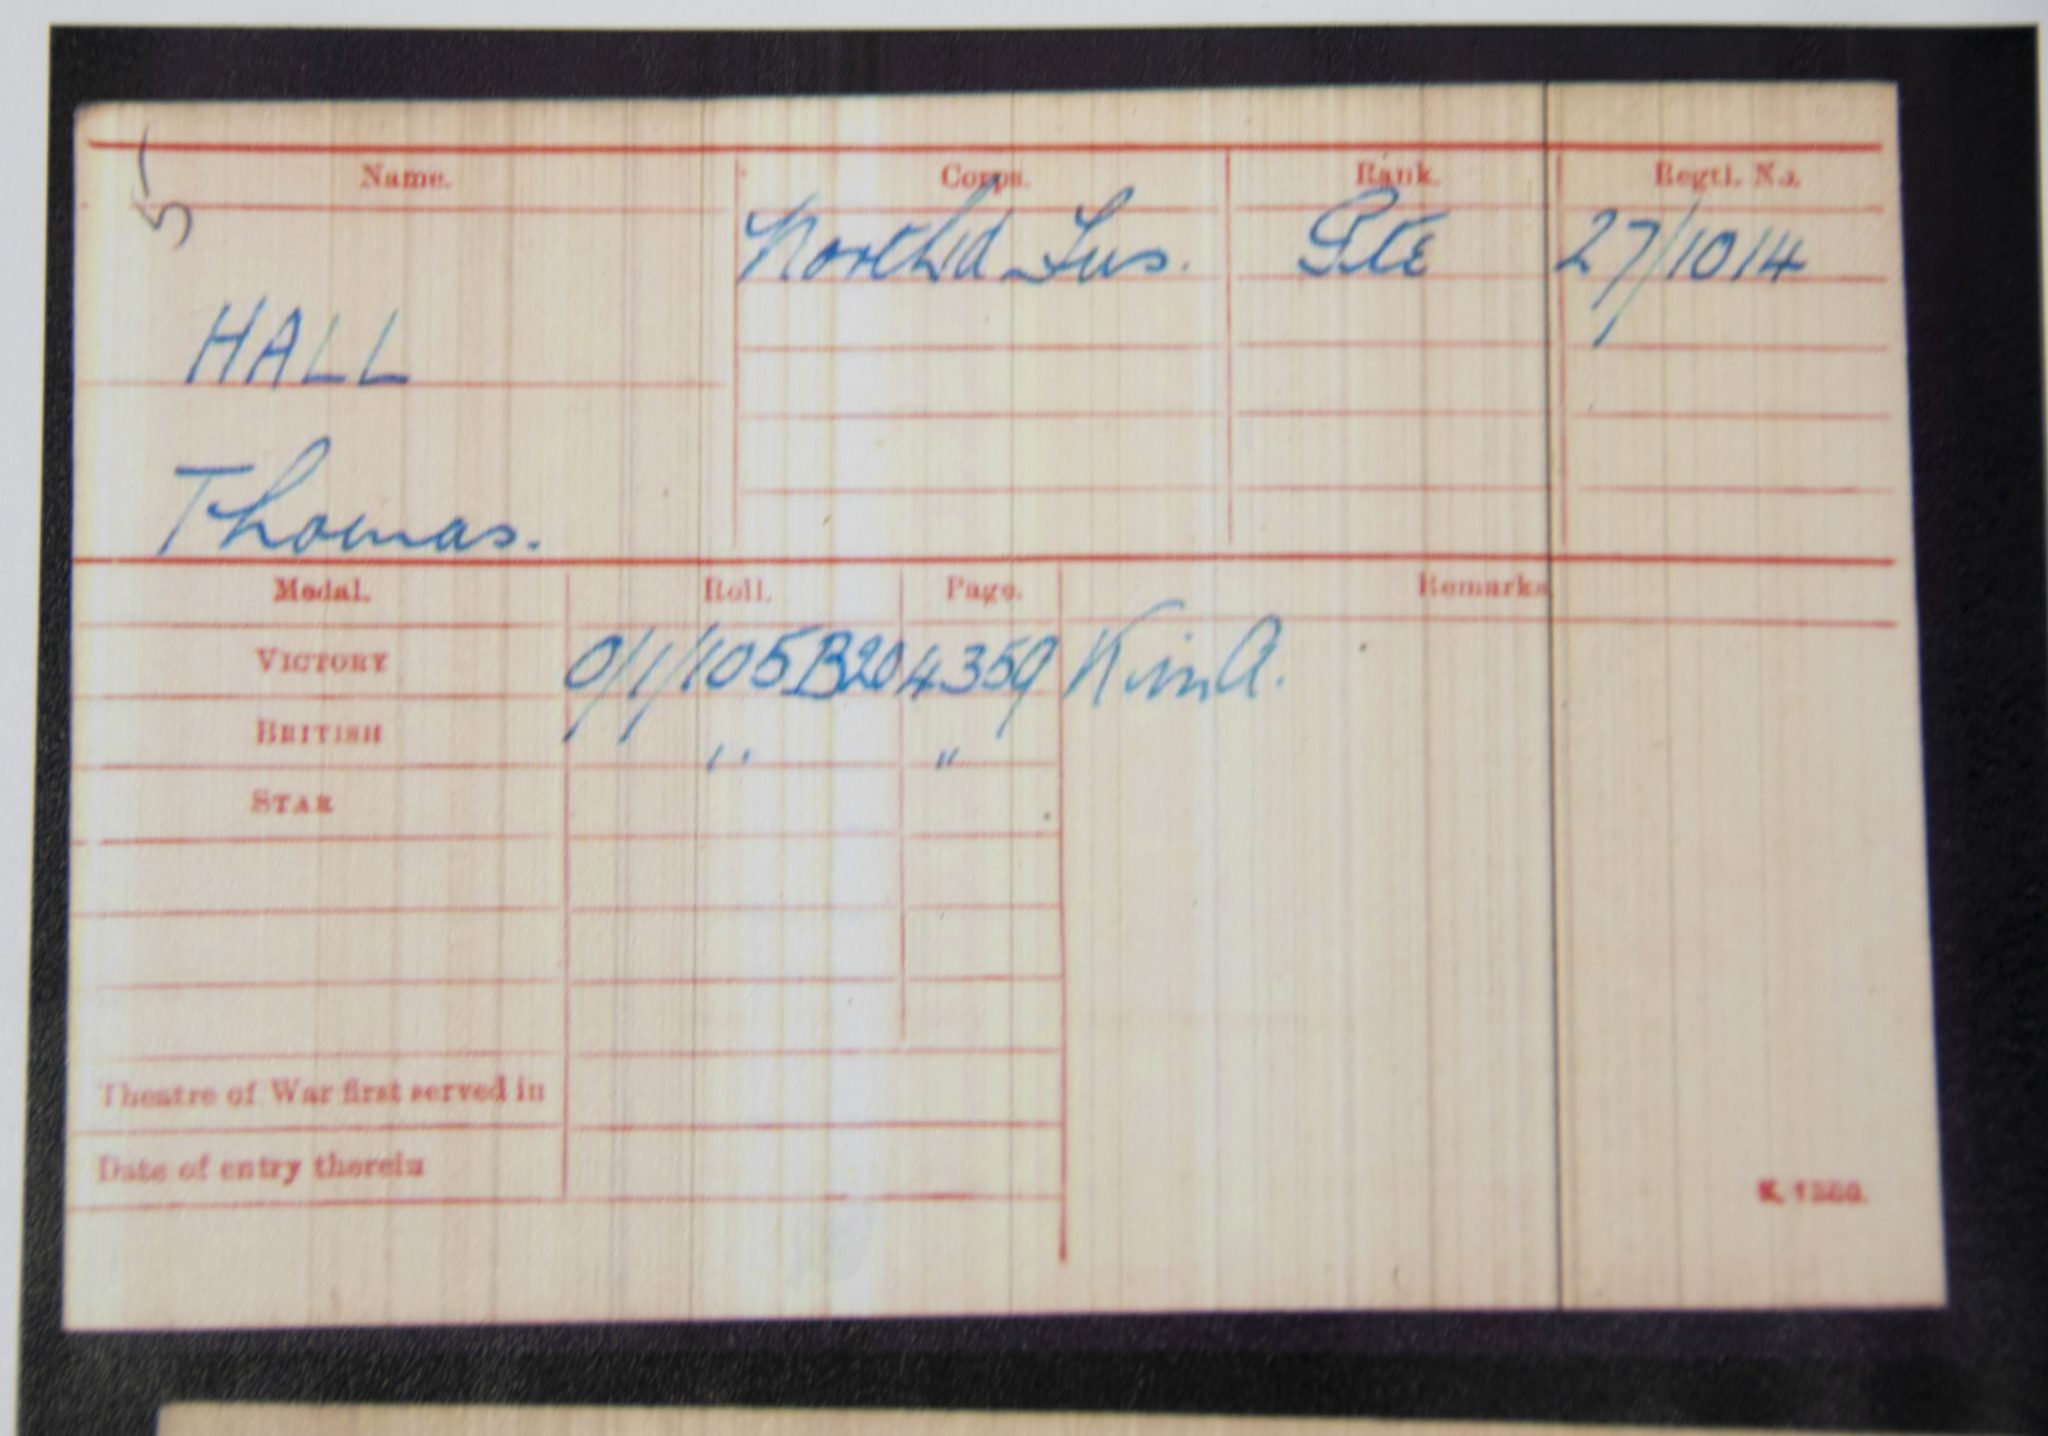 5
Name. Corps. Rank. Regtl. No.
HALL Northd Fus. Pte 27/1014
Thomas.
Medal. Roll. Page. Remarks
VICTORY 0/1/105B20 4359 KinA.
BRITISH " "
STAR
Theatre of War first served in
Date of entry therein
K. 1380.